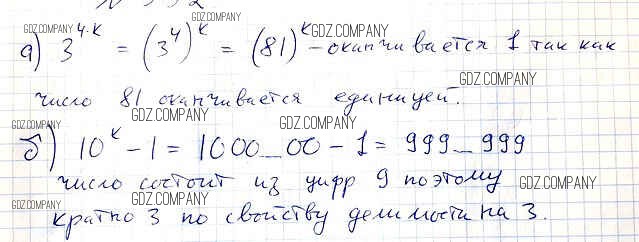 GDZ.COMPANY
GDZ.COMPANY GDZ.COMPANY
а) 3^{4·k} = (3^4)^k = (81)^k – оканчивается 1 так как
GDZ.COMPANY
число 81 оканчивается единицей.
GDZ.COMPANY GDZ.COMPANY GDZ.COMPANY
б) 10^k - 1 = 1000...00 - 1 = 999...999
число состоит из цифр 9 поэтому GDZ.COMPANY
GDZ.COMPANY GDZ.COMPANY GDZ.COMPANY
кратно 3 по свойству делимости на 3.